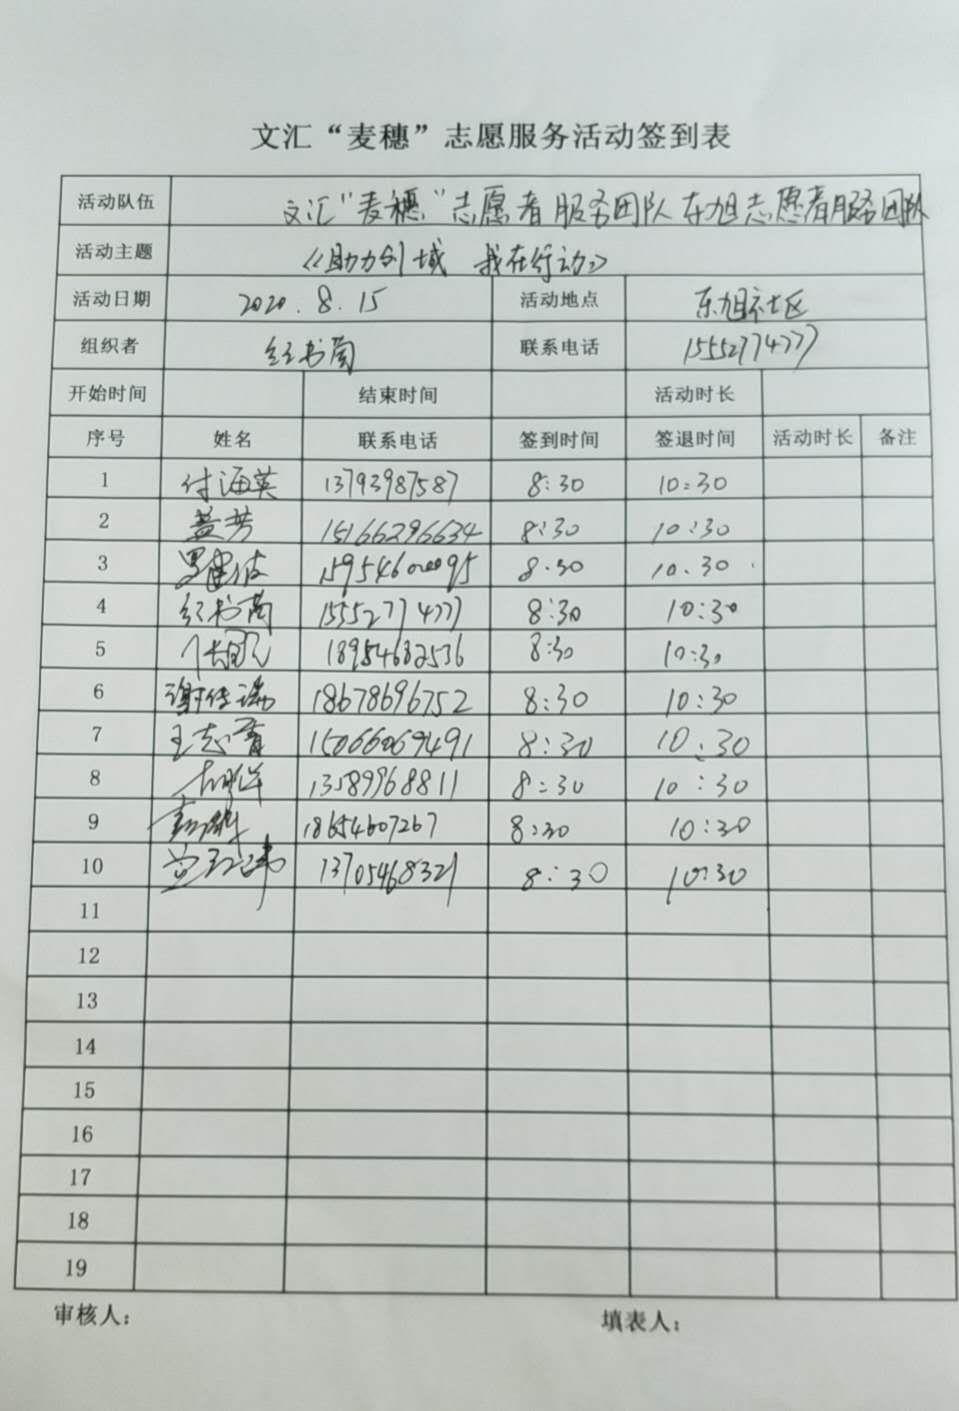 文汇“麦穗”志愿服务活动签到表
活动队伍 文汇“麦穗”志愿者服务团队东旭志愿者服务团队
活动主题 《助力创城 我在行动》
活动日期 2020.8.15 活动地点 东旭社区
组织者 纪书菊 联系电话 15552774777
开始时间 结束时间 活动时长
序号 姓名 联系电话 签到时间 签退时间 活动时长 备注
1 付海英 13793987587 8:30 10:30
2 盖芳 15166296634 8:30 10:30
3 8:30 10:30
4 纪书菊 15552774777 8:30 10:30
5 18954682536 8:30 10:30
6 谢传瑞 18678696752 8:30 10:30
7 王志 15066069491 8:30 10:30
8 13589968811 8:30 10:30
9 18654607267 8:30 10:30
10 13705468321 8:30 10:30
11
12
13
14
15
16
17
18
19
审核人： 填表人：